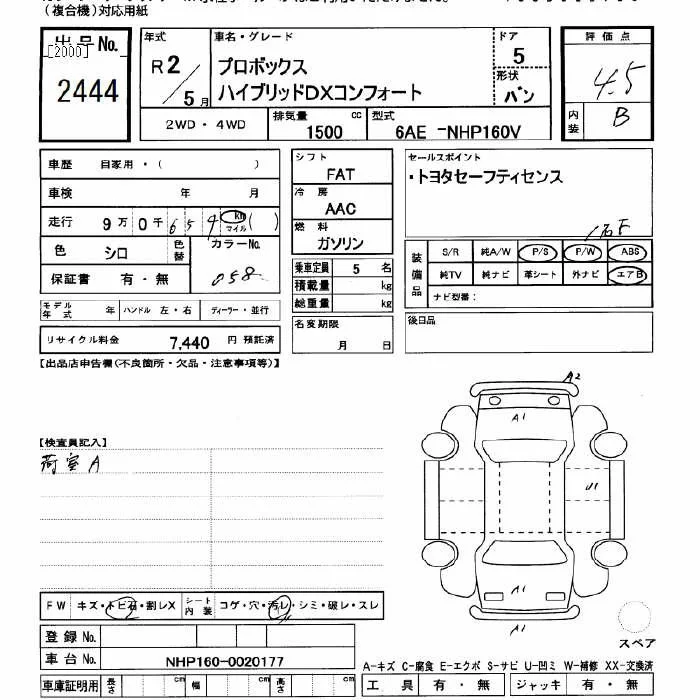 (複合機)対応用紙
出品No.
[2000]
2444
年式
R2/5月
車名・グレード
プロボックス
ハイブリッドDXコンフォート
ドア
5
形状
バン
評価点
4.5
内装
B
2WD・4WD
排気量
1500 cc
型式
6AE -NHP160V
車歴 自家用・( )
車検 年 月
走行 9万0千659 km マイル ( )
色 シロ 色替 カラーNo. 058
保証書 有・無
モデル年式 年 ハンドル 左・右 ディーラー・並行
リサイクル料金 7,440 円 預託済
シフト
FAT
冷房
AAC
燃料
ガソリン
乗車定員 5 名
積載量 kg
総重量 kg
名変期限
月 日
セールスポイント
・トヨタセーフティセンス
装備品
S/R 純A/W P/S P/W ABS
純TV 純ナビ 革シート 外ナビ エアB
ナビ型番:
後日品
【出品店申告欄(不良箇所・欠品・注意事項等)】
【検査員記入】
荷室A
A2
A1
U1
A1
A1
スペア
FW キズ・トビ石・割レX シート内装 コゲ・穴・汚レ・シミ・破レ・スレ
登録No.
車台No. NHP160-0020177
車庫証明用 長さ cm 幅 cm 高さ cm
A-キズ C-腐食 E-エクボ S-サビ U-凹ミ W-補修 XX-交換済
工具 有・無 ジャッキ 有・無